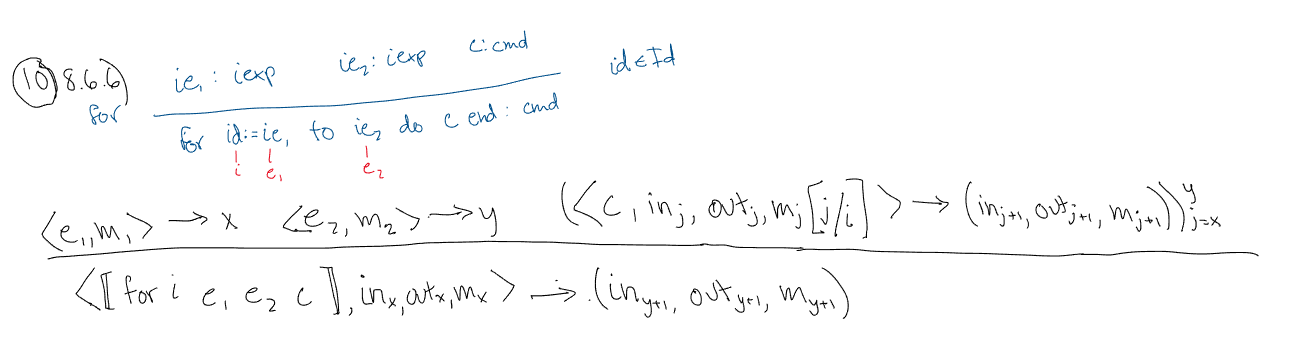 ⑩ 8.6.6) ie₁ : iexp ie₂ : iexp c : cmd id ∈ Id
for for id := ie₁ to ie₂ do c end : cmd
i e₁ e₂
⟨e₁, m₁⟩ → x ⟨e₂, m₂⟩ → y (⟨c, inⱼ, outⱼ, mⱼ[j/i]⟩ → (inⱼ₊₁, outⱼ₊₁, mⱼ₊₁))ʸⱼ₌ₓ
⟨⟦for i e₁ e₂ c⟧, inₓ, outₓ, mₓ⟩ → (in_{y+1}, out_{y+1}, m_{y+1})